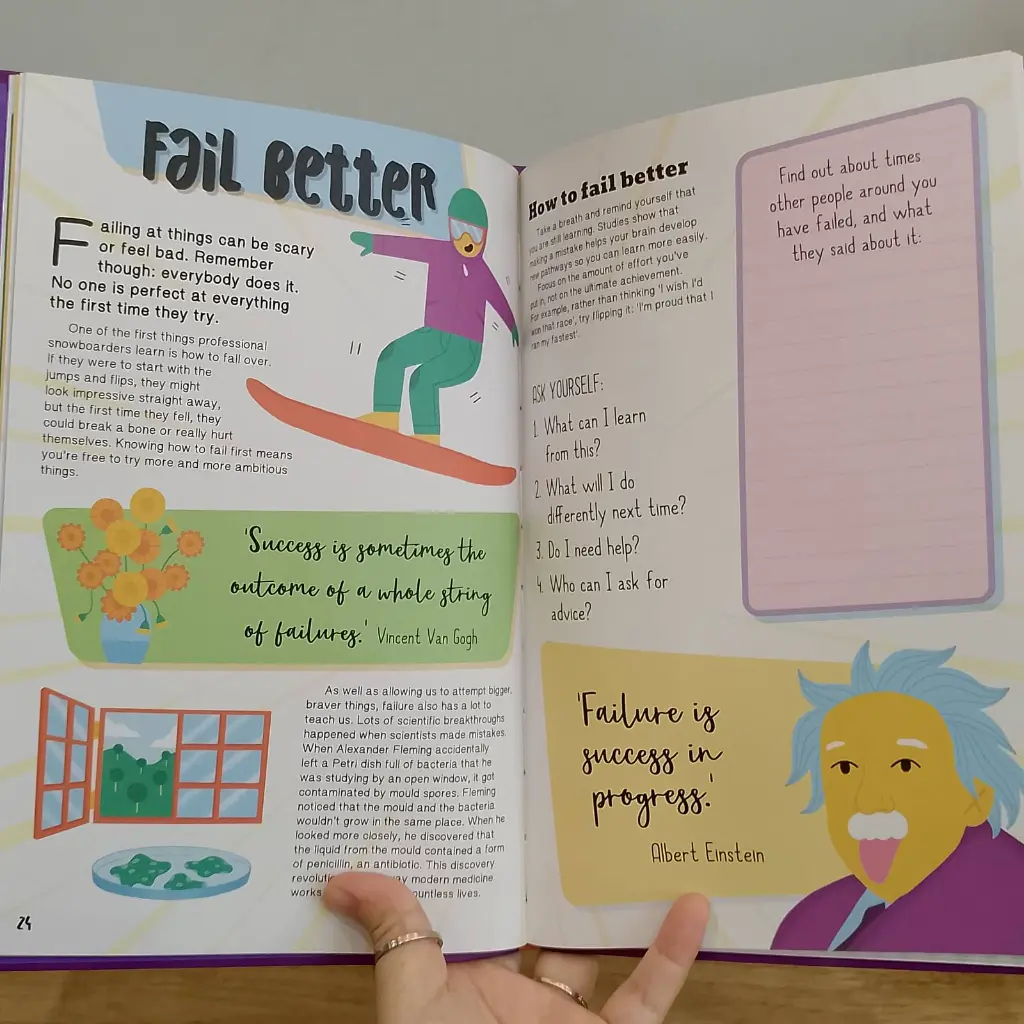 Fail Better
Failing at things can be scary
or feel bad. Remember
though: everybody does it.
No one is perfect at everything
the first time they try.
One of the first things professional
snowboarders learn is how to fall over.
If they were to start with the
jumps and flips, they might
look impressive straight away,
but the first time they fell, they
could break a bone or really hurt
themselves. Knowing how to fail first means
you're free to try more and more ambitious
things.
'Success is sometimes the
outcome of a whole string
of failures.' Vincent Van Gogh
As well as allowing us to attempt bigger,
braver things, failure also has a lot to
teach us. Lots of scientific breakthroughs
happened when scientists made mistakes.
When Alexander Fleming accidentally
left a Petri dish full of bacteria that he
was studying by an open window, it got
contaminated by mould spores. Fleming
noticed that the mould and the bacteria
wouldn't grow in the same place. When he
looked more closely, he discovered that
the liquid from the mould contained a form
of penicillin, an antibiotic. This discovery
modern medicine
works lives.
24
How to fail better
Take a breath and remind yourself that
you are still learning. Studies show that
making a mistake helps your brain develop
new pathways so you can learn more easily.
Focus on the amount of effort you've
put in, not on the ultimate achievement.
For example, rather than thinking 'I wish I'd
won that race', try flipping it: 'I'm proud that I
ran my fastest'.
ASK YOURSELF:
1. What can I learn
from this?
2. What will I do
differently next time?
3. Do I need help?
4. Who can I ask for
advice?
Find out about times
other people around you
have failed, and what
they said about it:
'Failure is
success in
progress.'
Albert Einstein